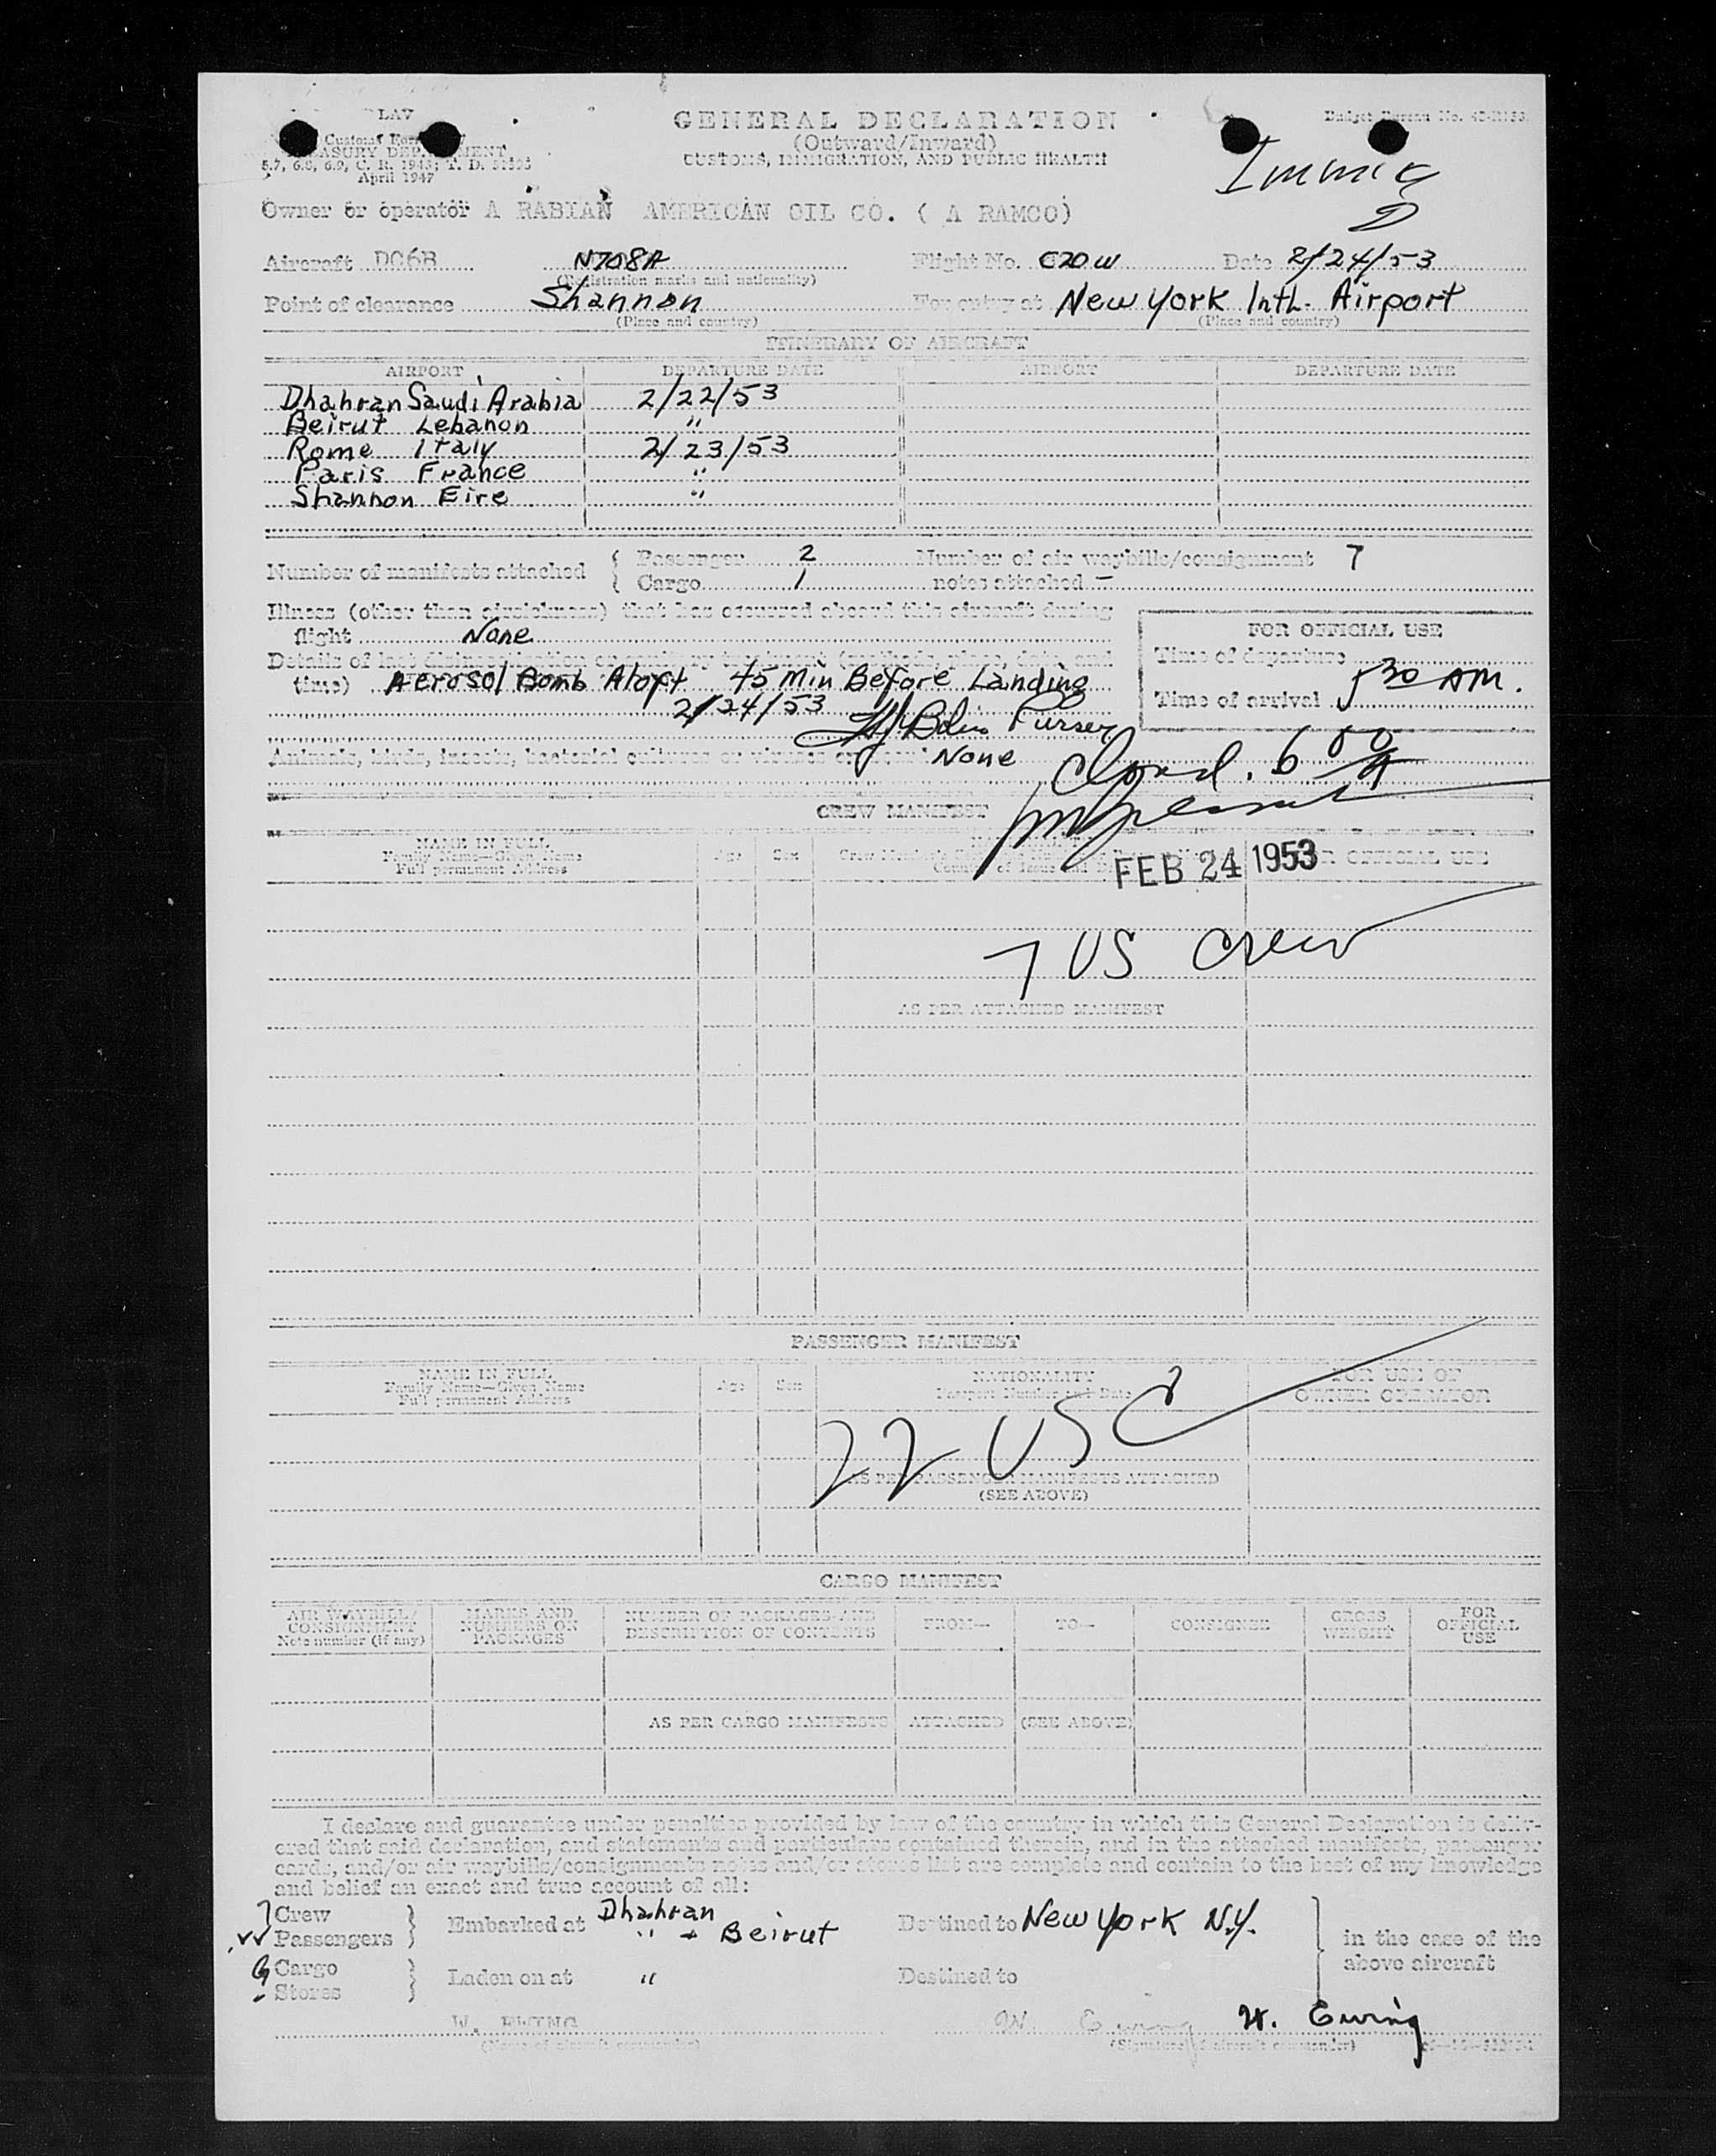 LAV
Customs Form
TREASURY DEPARTMENT
5.7, 6.8, 6.9, C. R. 1943; T. D.
April 1947
GENERAL DECLARATION
(Outward/Inward)
CUSTOMS, IMMIGRATION, AND PUBLIC HEALTH
Budget Bureau No.
Owner or operator A RABIAN AMERICAN OIL CO. ( A RAMCO)
Aircraft DC6B N708A Flight No. C70W Date 2/24/53
(Registration marks and nationality)
Point of clearance Shannon For entry at New York Intl. Airport
(Place and country) (Place and country)
ITINERARY OF AIRCRAFT
AIRPORT DEPARTURE DATE AIRPORT DEPARTURE DATE
Dhahran Saudi Arabia 2/22/53
Beirut Lebanon "
Rome Italy 2/23/53
Paris France "
Shannon Eire "
Number of manifests attached { Passenger 2 Number of air waybills/consignment 7
{ Cargo 1 notes attached -
Illness (other than airsickness) that has occurred aboard this aircraft during
flight None
FOR OFFICIAL USE
Details of last disinsectization or sanitary treatment (methods, place, date, and
Time of departure
time) Aerosol Bomb Aloft 45 Min Before Landing
Time of arrival 5 30 AM.
2/24/53
Purser
Animals, birds, insects, bacterial cultures or viruses on None
6 50 A
CREW MANIFEST
NAME IN FULL
Family Name—Given Name
Full permanent Address
Age Sex
FOR OFFICIAL USE
FEB 24 1953
7 US Crew
AS PER ATTACHED MANIFEST
PASSENGER MANIFEST
NAME IN FULL
Family Name—Given Name
Full permanent Address
Age Sex
NATIONALITY
Passport Number and Date
FOR USE OF
OWNER OPERATOR
22 USC
AS PER PASSENGER MANIFESTS ATTACHED
(SEE ABOVE)
CARGO MANIFEST
AIR WAYBILL/
CONSIGNMENT
Note number (if any)
MARKS AND
NUMBERS ON
PACKAGES
NUMBER OF PACKAGES AND
DESCRIPTION OF CONTENTS
FROM—
TO—
CONSIGNEE
GROSS
WEIGHT
FOR
OFFICIAL
USE
AS PER CARGO MANIFESTS ATTACHED (SEE ABOVE)
I declare and guarantee under penalties provided by law of the country in which this General Declaration is deliv-
ered that said declaration, and statements and particulars contained therein, and in the attached manifests, passenger
cards, and/or air waybills/consignments notes and/or stores list are complete and contain to the best of my knowledge
and belief an exact and true account of all:
7 Crew } Embarked at Dhahran Destined to New York N.Y.
Passengers " + Beirut
in the case of the
above aircraft
Cargo } Laden on at " Destined to
- Stores
W. EWING W. Ewing W. Ewing
(Name of aircraft commander) (Signature of aircraft commander)